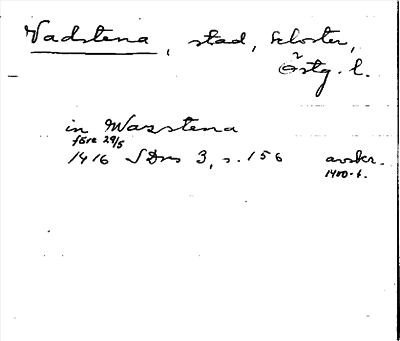 Vadstena, stad, kloster,
Östg. l.
in Wazstena
före 29/5
1416 SDns 3, s. 156 avskr.
1400-t.